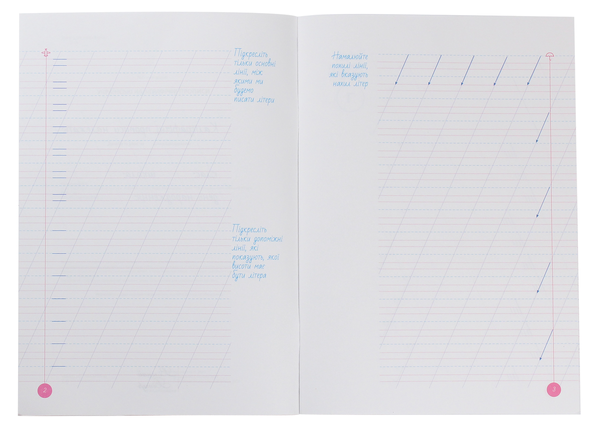 Підкресліть
тільки основні
лінії, між
якими ми
будемо
писати літери
Підкресліть
тільки допоміжні
лінії, які
показують, якої
висоти має
бути літера
2
Намалюйте
похилі лінії,
які вказують
нахил літер
3